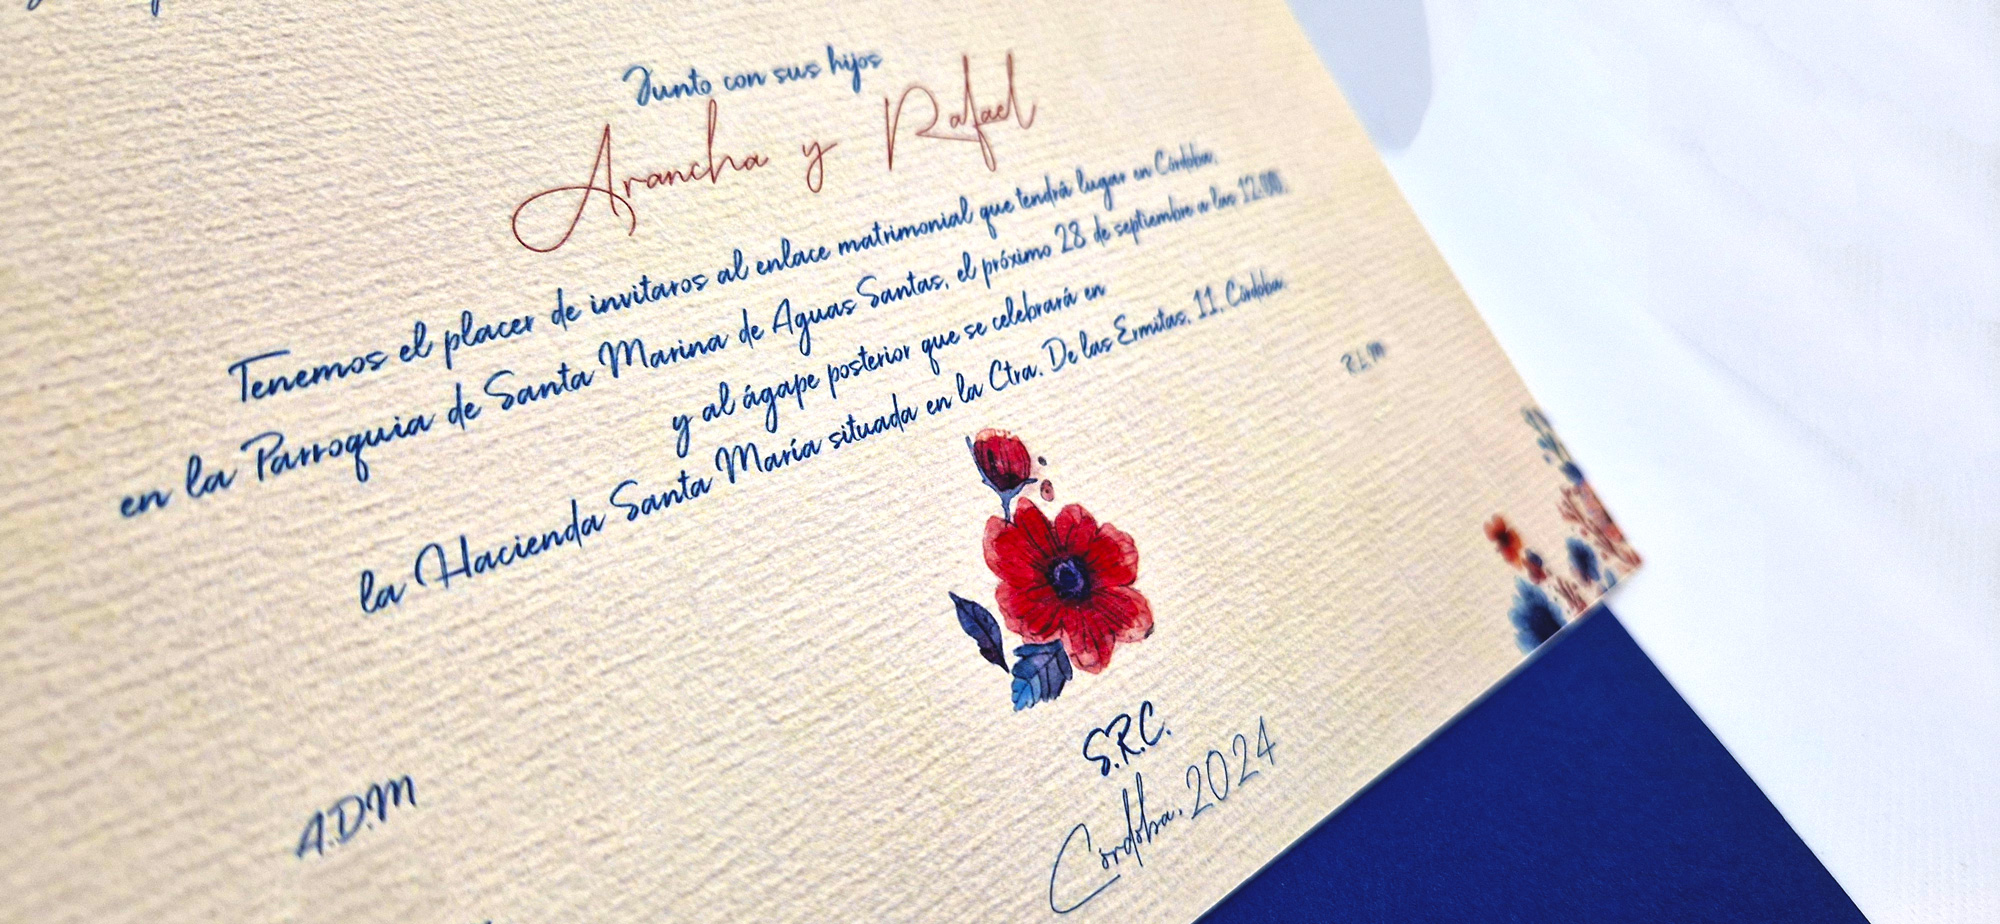 Junto con sus hijos
Arancha y Rafael
Tenemos el placer de invitaros al enlace matrimonial que tendrá lugar en Córdoba,
en la Parroquia de Santa Marina de Aguas Santas, el próximo 28 de septiembre a las 12:00,
y al ágape posterior que se celebrará en
la Hacienda Santa María situada en la Ctra. De las Ermitas, 11, Córdoba.
S.R.C.
A.D.M
Córdoba, 2024